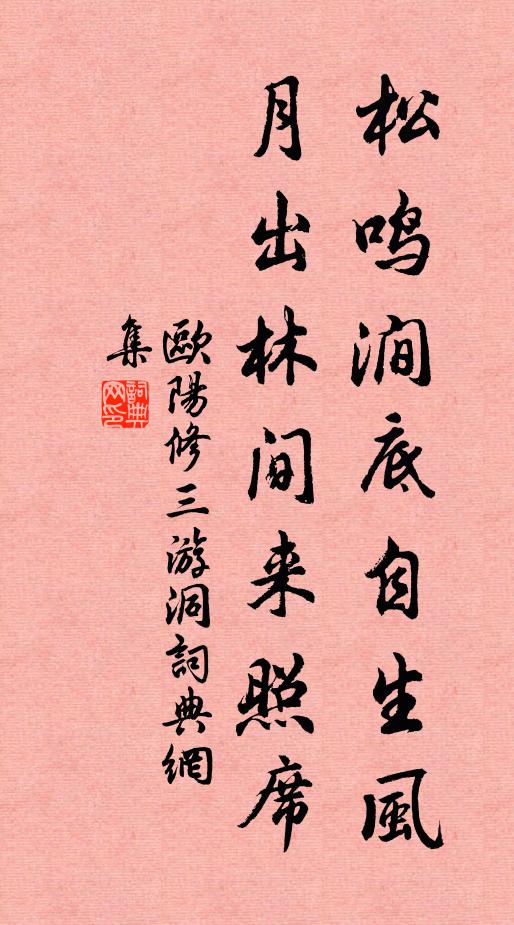 松鸣澗底自生風
月出林間来照席
歐陽修三游洞詞典網
集
詞典
网印